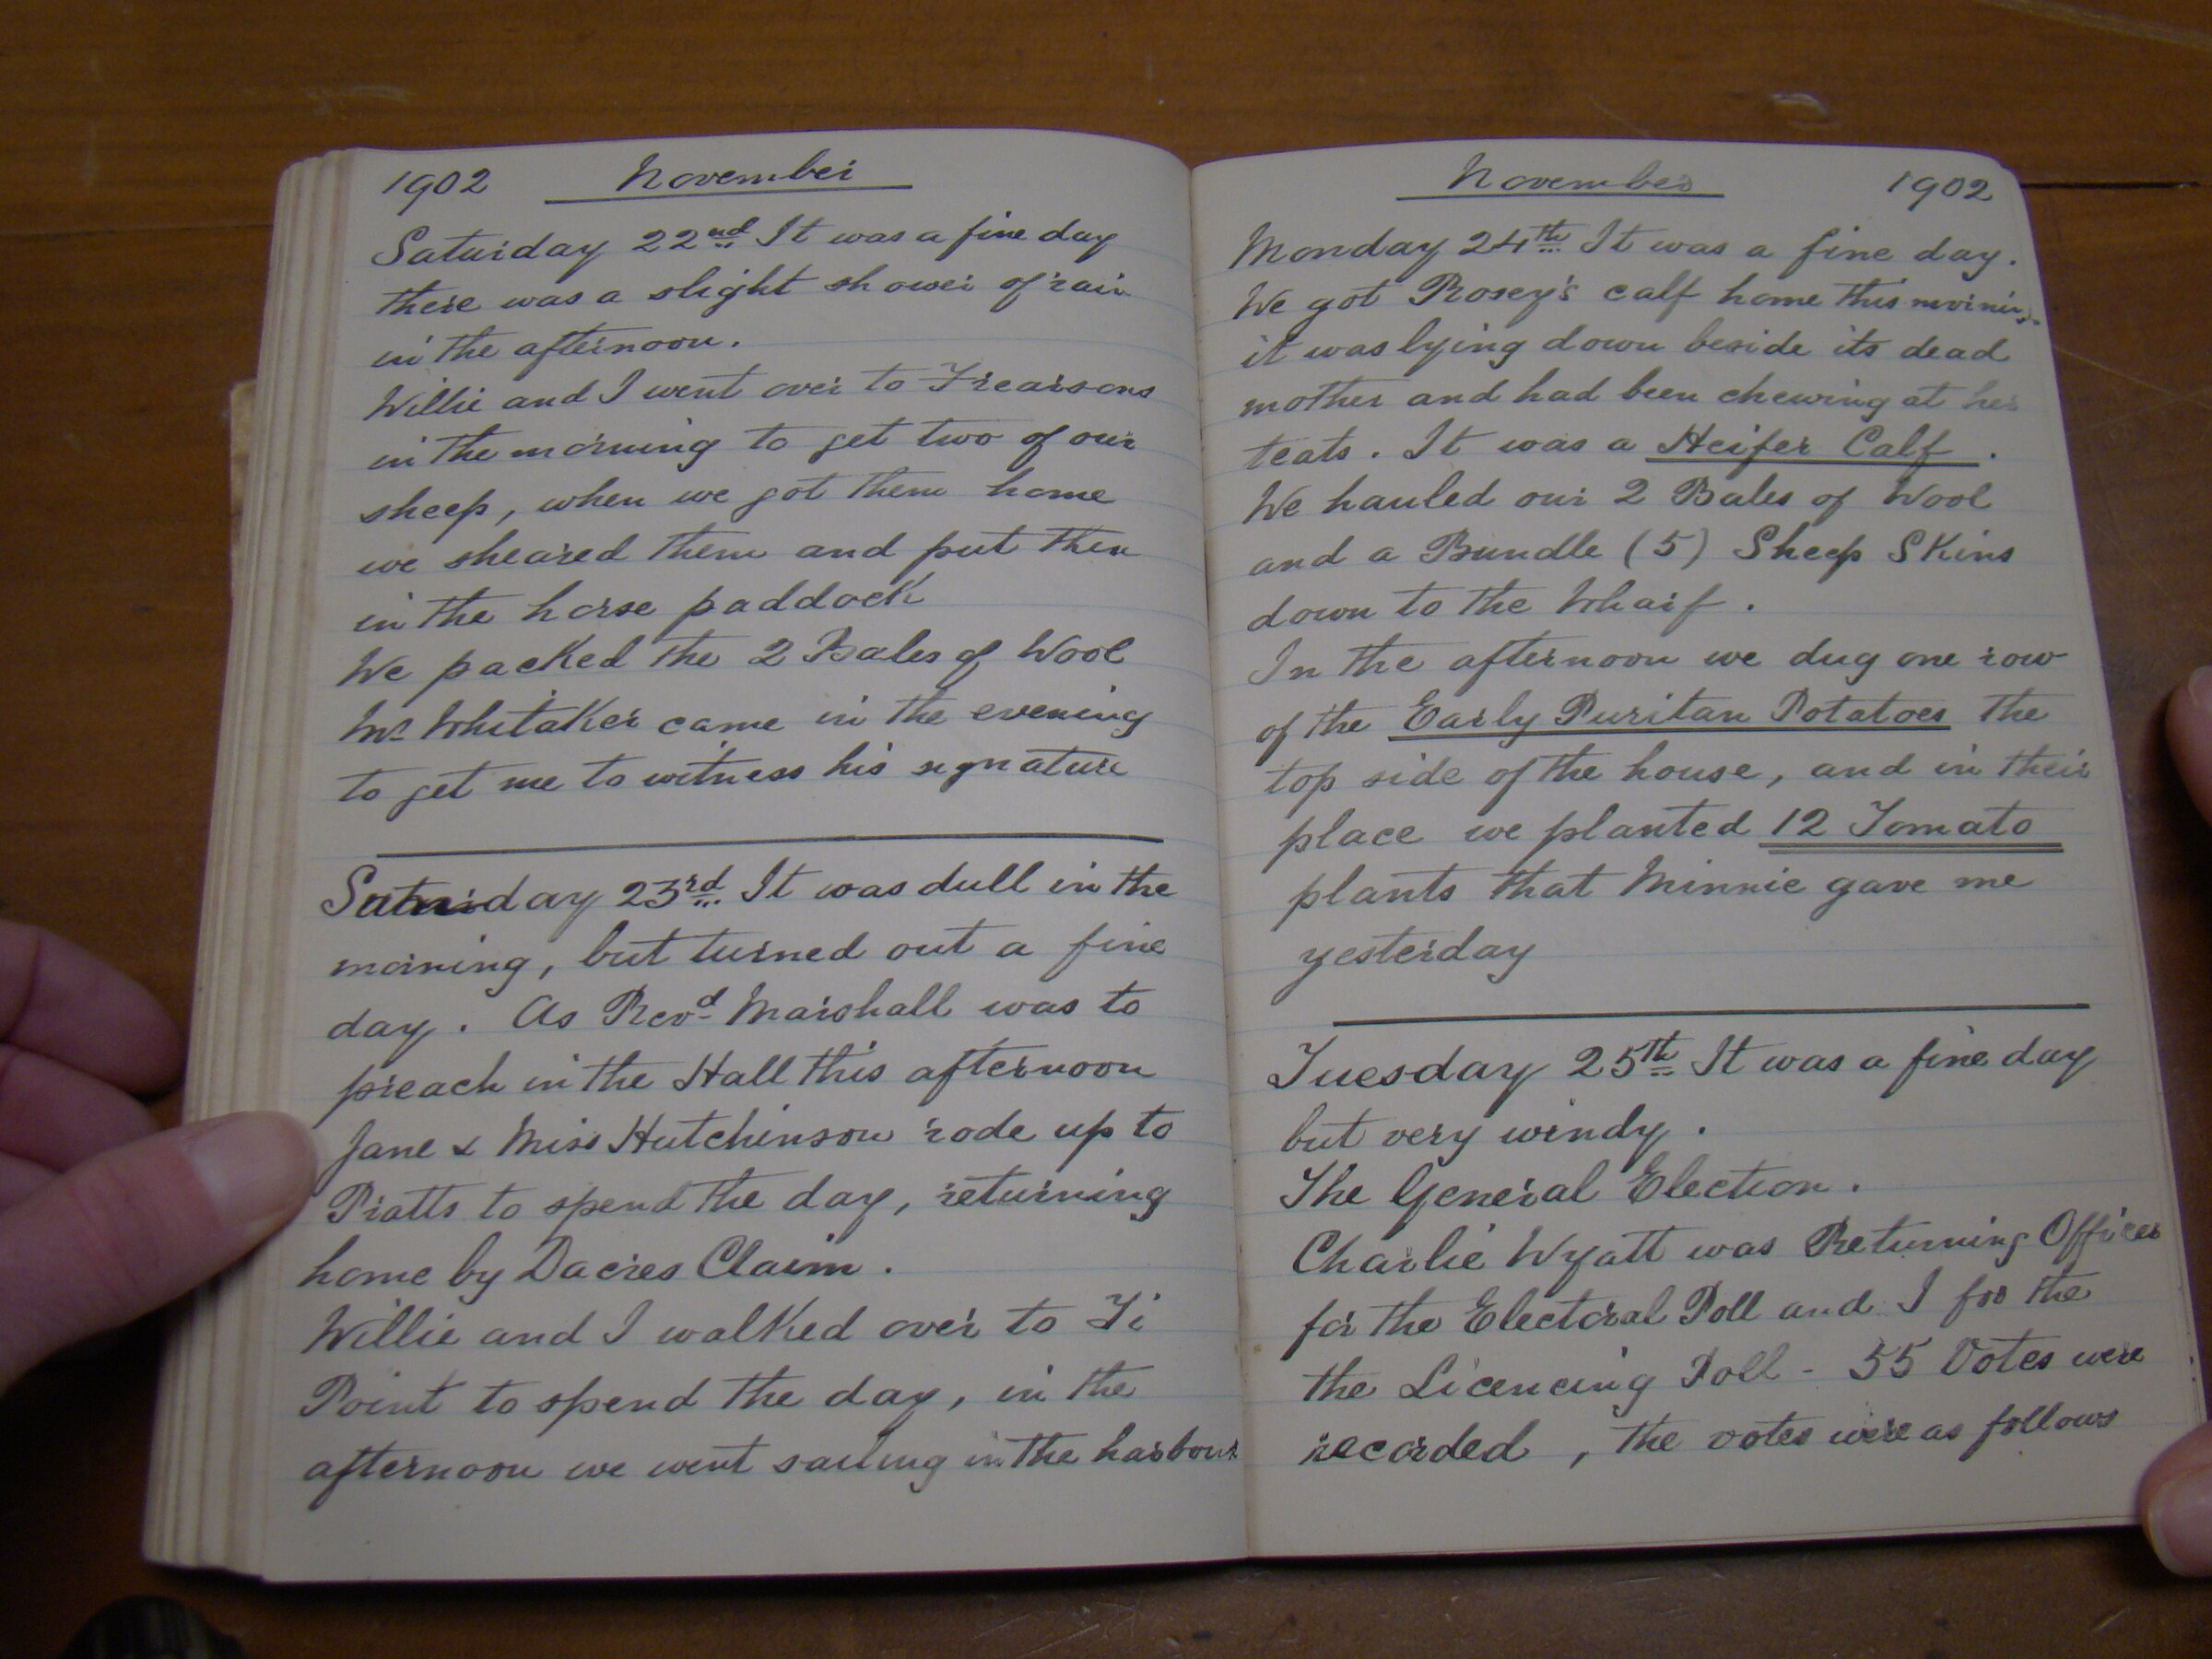 1902 November
Saturday 22nd It was a fine day
there was a slight shower of rain
in the afternoon.
Willie and I went over to Frearsons
in the morning to get two of our
sheep, when we got them home
we sheared them and put them
in the horse paddock
We packed the 2 Bales of Wool
Mr Whitaker came in the evening
to get me to witness his signature
day 23rd It was dull in the
morning, but turned out a fine
day. As Revd Marshall was to
preach in the Hall this afternoon
Jane & Miss Hutchinson rode up to
Pratts to spend the day, returning
home by Dacres Claim.
Willie and I walked over to Ti
Point to spend the day, in the
afternoon we went sailing in the harbour
November 1902
Monday 24th It was a fine day.
We got Rosey's calf home this morning
it was lying down beside its dead
mother and had been chewing at her
teats. It was a Heifer Calf.
We hauled our 2 Bales of Wool
and a Bundle (5) Sheep Skins
down to the Wharf.
In the afternoon we dug one row
of the Early Puritan Potatoes the
top side of the house, and in their
place we planted 12 Tomato
plants that Minnie gave me
yesterday
Tuesday 25th It was a fine day
but very windy.
The General Election.
Charlie Wyatt was Returning Officer
for the Electoral Poll and I for the
the Licencing Poll - 55 Votes were
recorded, the votes were as follows